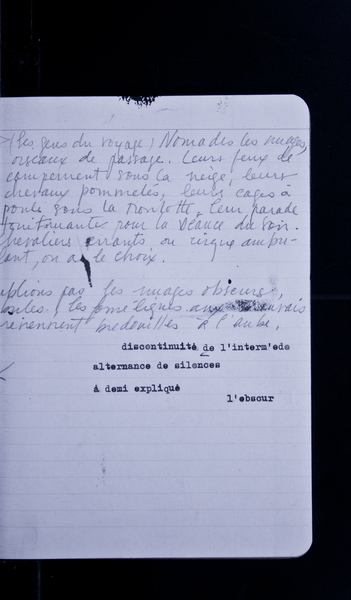 (les gens du voyage) Nomades les nuages,
oiseaux de passage. Leurs feux de
campement sous la neige, leurs
chevaux pommelés, leurs cages à
poule sous la roulotte, leur parade
tonitruante pour la séance du soir.
Chevaliers errants, ou cirque ambu-
lant, on a le choix.
ublions pas les nuages obscurs,
les
reviennent bredouilles à l'aube.
discontinuité de l'interm'ede
alternance de silences
à demi expliqué
l'obscur